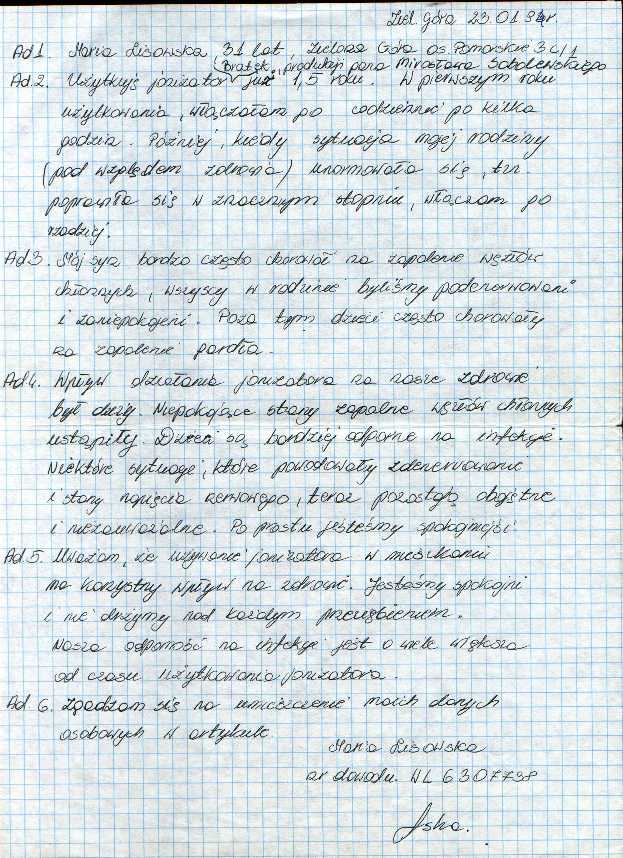 Ziel. Góra 23.01.94r
Ad 1. Maria Lisowska, 31 lat, Zielona Góra os. Pomorskie 3c/1
"Bratek", produkcji pana Mirosława Sobolewskiego
Ad 2. Użytkuję jonizator już 1,5 roku. W pierwszym roku
użytkowania, włączałam po codziennie po kilka
godzin. Później, kiedy sytuacja mojej rodziny
(pod względem zdrowia) unormowała się, tzn.
poprawiła się w znacznym stopniu, włączam po
rzadziej.
Ad 3. Mój syn bardzo często chorował na zapalenie węzłów
chłonnych, wszyscy w rodzinie byliśmy podenerwowani
i zaniepokojeni. Poza tym dzieci często chorowały
na zapalenie gardła.
Ad 4. Wpływ działania jonizatora na nasze zdrowie
był duży. Niepokojące stany zapalne węzłów chłonnych
ustąpiły. Dzieci są bardziej odporne na infekcje.
Niektóre sytuacje, które powodowały zdenerwowanie
i stany napięcia nerwowego, teraz pozostają obojętne
i niezauważalne. Po prostu jesteśmy spokojniejsi
Ad 5. Uważam, że używanie jonizatora w mieszkaniu
ma korzystny wpływ na zdrowie. Jesteśmy spokojni
i nie drżymy nad każdym przeziębieniem.
Nasza odporność na infekcje jest o wiele większa
od czasu użytkowania jonizatora.
Ad 6. Zgadzam się na umieszczenie moich danych
osobowych w artykule
Maria Lisowska
nr dowodu. WL 6307738